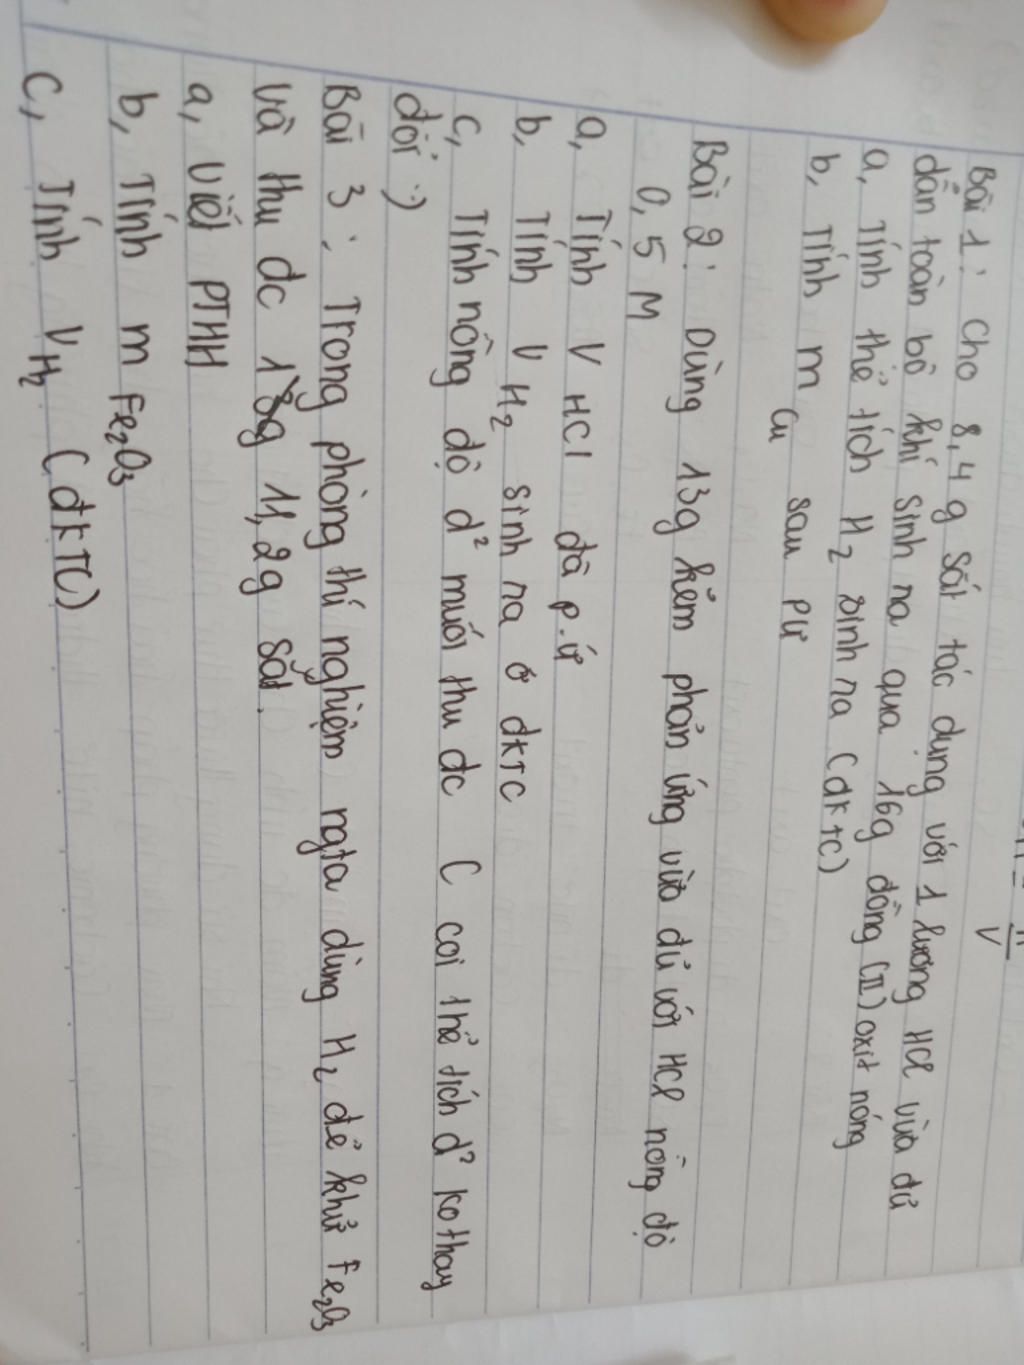 Bài 1: Cho 8,4 g sắt tác dụng với 1 lượng HCl vừa đủ
dẫn toàn bộ khí sinh ra qua 16g đồng (II) oxit nóng
a, Tính thể tích H2 sinh ra (đktc)
b, Tính m Cu sau pư
Bài 2: Dùng 13g kẽm phản ứng vừa đủ với HCl nồng độ
0,5 M
a, Tính V HCl đã p.ứ
b, Tính V H2 sinh ra ở đktc
c, Tính nồng độ d² muối thu đc ( coi thể tích d² ko thay
đổi :)
Bài 3: Trong phòng thí nghiệm ngta dùng H2 để khử Fe2O3
và thu đc 11,2g sắt.
a, Viết PTHH
b, Tính m Fe2O3
c, Tính V H2 (đktc)